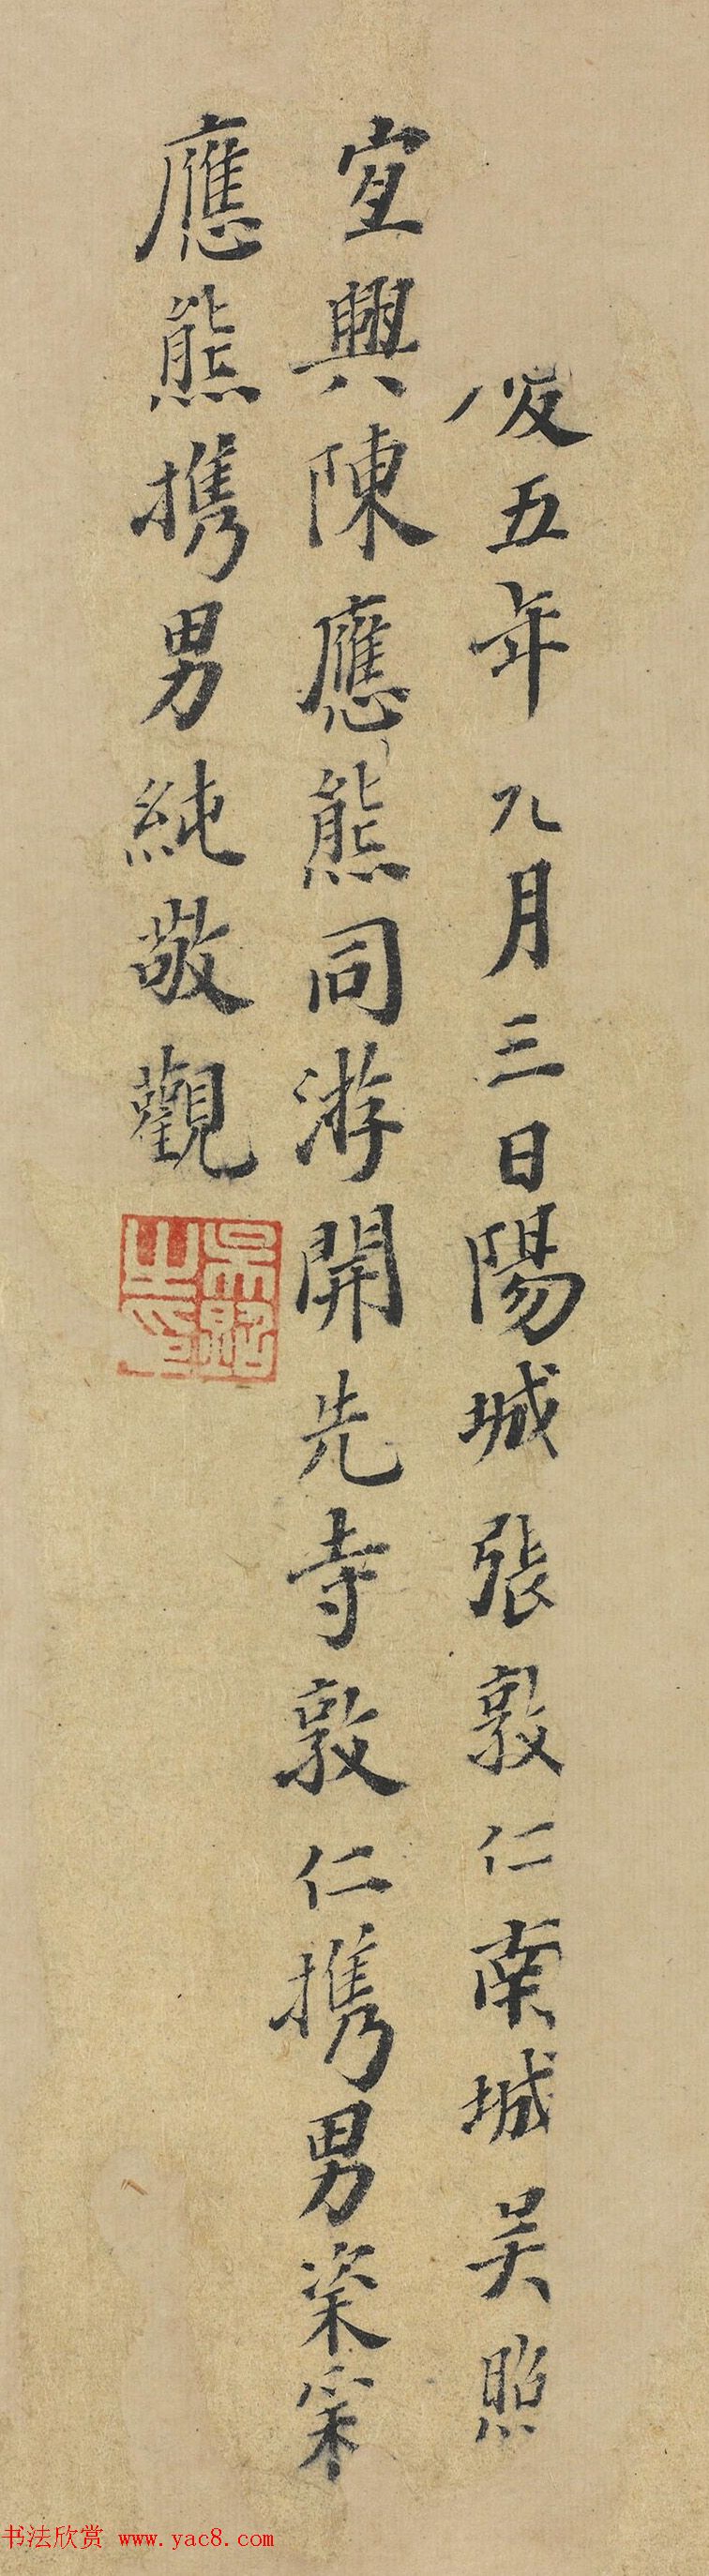 後五年九月三日陽城張敦仁南城吴照
宜興陳應熊同游開先寺敦仁携男粢寀
應熊携男純敬觀
吴照之印
书法欣赏 www.yac8.com